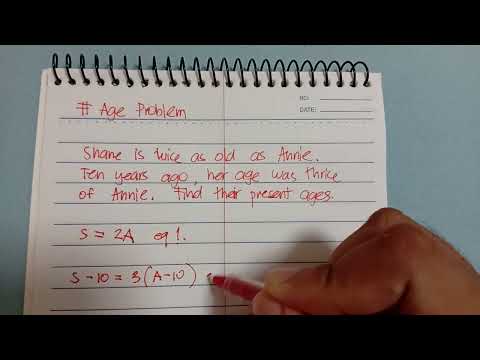 NO:
DATE:
# Age Problem
Shane is twice as old as Annie.
Ten years ago, her age was thrice
of Annie. Find their present ages.
S = 2A eq 1.
S - 10 = 3(A-10)